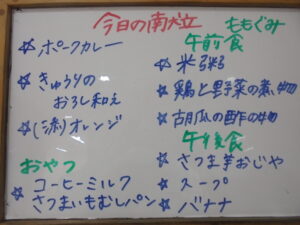 今日の献立
☆ポークカレー
☆きゅうりの
おろし和え
☆オレンジ
おやつ
☆コーヒーミルク
さつまいもむしパン
ももぐみ
午前食
☆米粥
☆鶏と野菜の煮物
☆胡瓜の酢の物
午後食
☆さつま芋おじや
☆スープ
☆バナナ